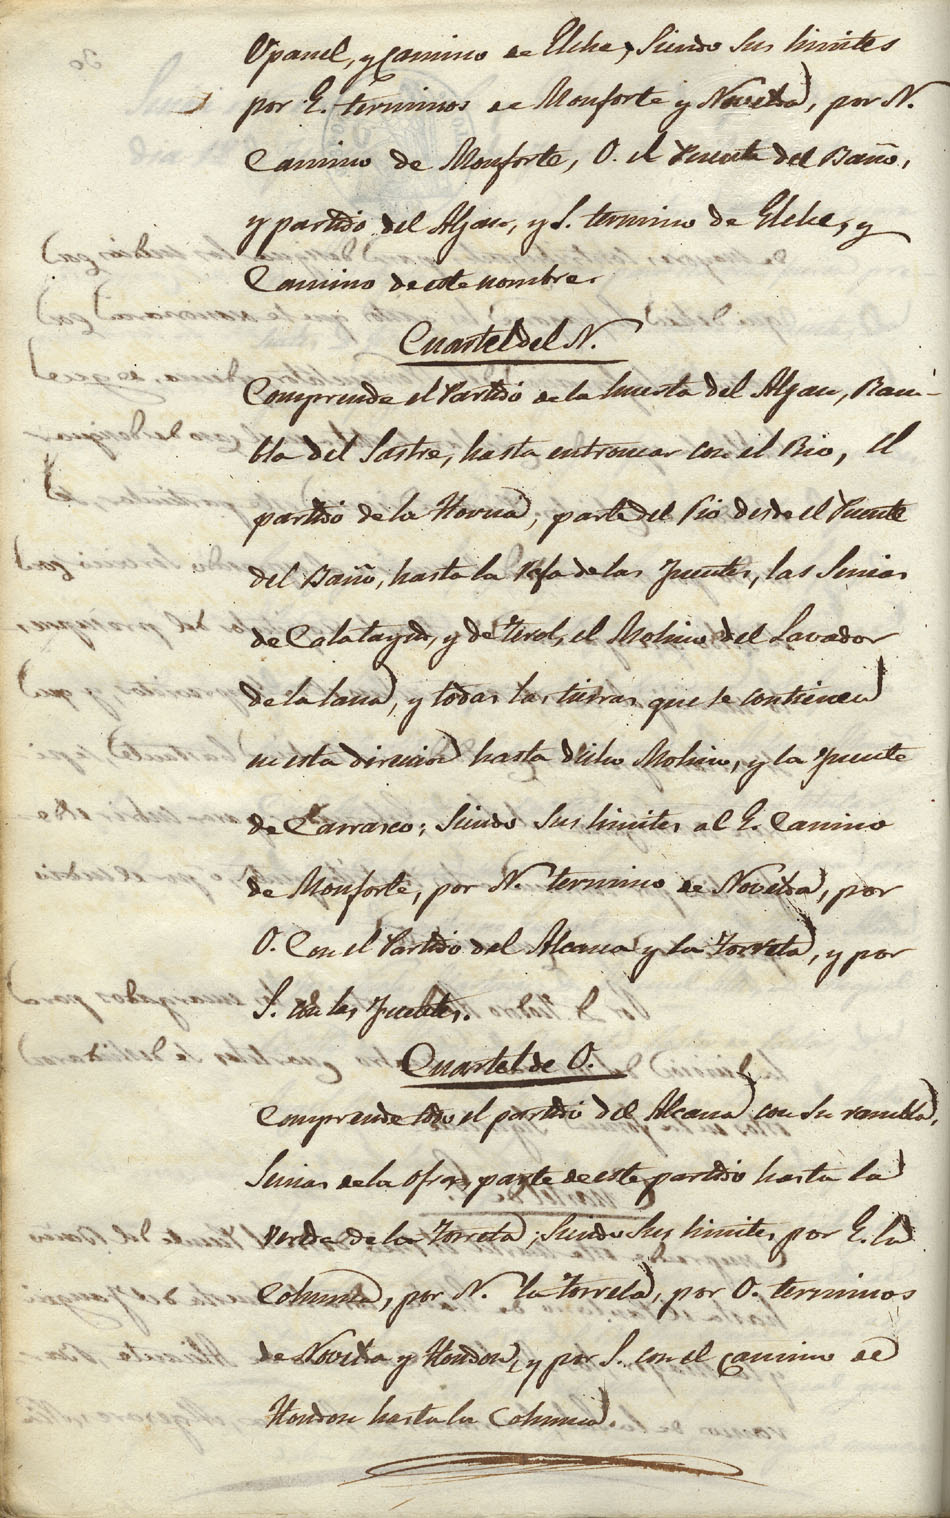 Opanel, y Camino de Elche, Siendo Sus limites
por E. terminos de Monforte y Novelda, por N.
Camino de Monforte, O. el Puente del Baño,
y partido del Aljau, y S. termino de Elche, y
Camino de este nombre.
Cuartel del N.
Comprende el Partido de la huerta del Aljau, Ram-
bla del Sastre, hasta entroncar con el Rio, el
partido de la Horna, parte del Rio desde el Puente
del Baño, hasta la Rafa de las Fuentes, las Sinias
de Calatayud, y de Terol, el Molino del Lavador
de la lana, y todas las tierras que se contienen
en esta direccion hasta dicho Molino, y la Fuente
de Carrasco; Siendo Sus limites al E. Camino
de Monforte, por N. termino de Novelda, por
O. Con el Partido del Alcana y la Torreta, y por
S. con las Fuentes.
Cuartel de O.
Comprende todo el partido del Alcana con Su rambla,
Sinias de la parte de este partido hasta la
de la Torreta; Siendo Sus limites por E. la
Columna, por N. la Torreta, por O. terminos
de Novelda y Hondon, y por S. con el Camino de
Hondon hasta la Columna.